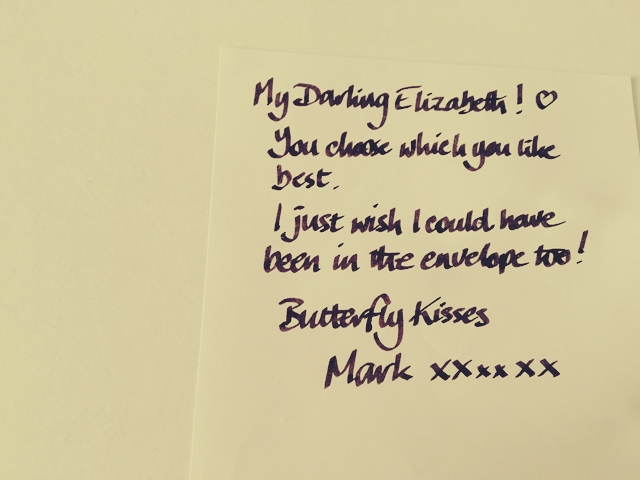 My Darling Elizabeth! ♡
You choose which you like
best.
I just wish I could have
been in the envelope too!
Butterfly Kisses
Mark xxxxxx